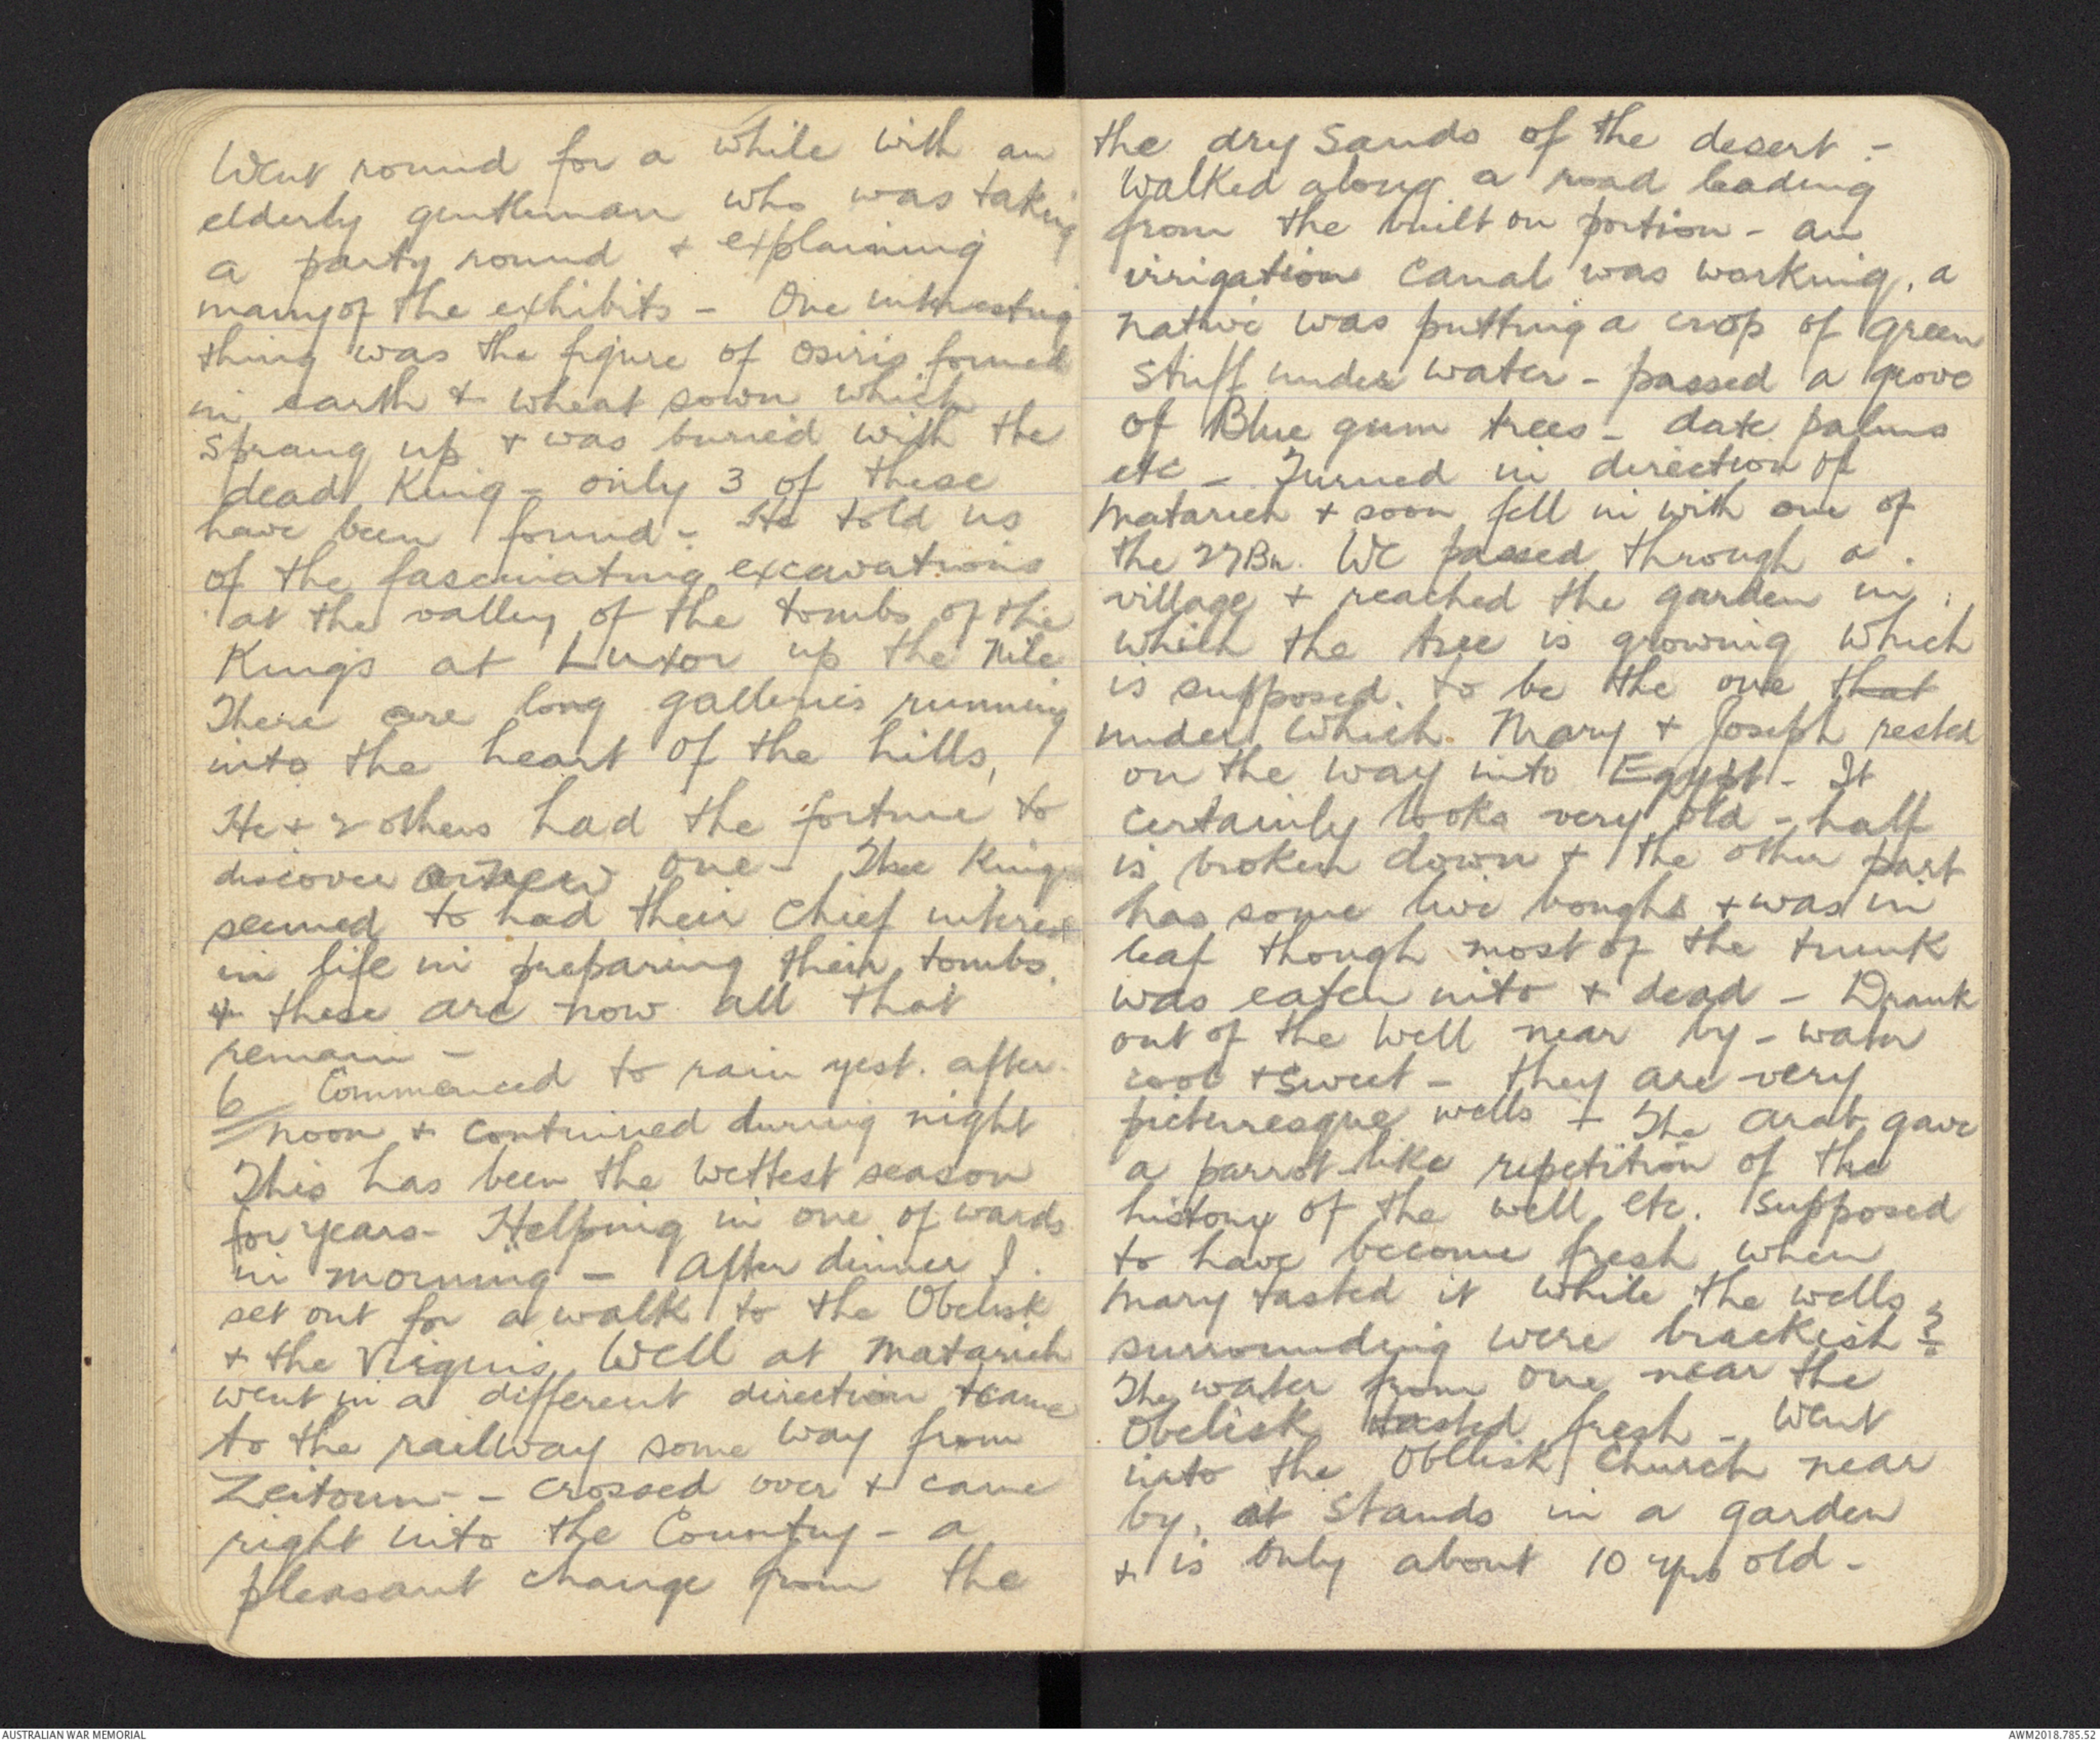 Went round for a while with an
elderly gentleman who was taking
a party round + explaining
many of the exhibits - One interesting
thing was the figure of Osiris formed
in earth + wheat sown which
sprang up + was buried with the
dead King - only 3 of these
have been found - He told us
of the fascinating excavations
at the valley of the tombs of the
Kings at Luxor up the Nile
There are long galleries running
into the heart of the hills,
He + 2 others had the fortune to
discover a new one - The Kings
seemed to had their chief interest
in life in preparing their tombs.
+ these are now all that
remain -
6 Commenced to rain yest. after
noon + continued during night
This has been the wettest season
for years - Helping in one of wards
in morning - After dinner I
set out for a walk to the Obelisk
+ the Virgin's Well at Matarieh
went in a different direction + came
to the railway some way from
Zeitoun - - crossed over + came
right into the Country - a
pleasant change from the
the dry sands of the desert -
Walked along a road leading
from the built on portion - an
irrigation canal was working, a
native was putting a crop of green
stuff under water - passed a grove
of Blue gum trees - date palms
etc - Turned in direction of
Matarieh + soon fell in with one of
the 27 Bn. We passed through a
village + reached the garden in
which the tree is growing which
is supposed to be the one that
under which Mary + Joseph rested
on the way into Egypt - It
certainly looks very old - half
is broken down + the other part
has some live boughs + was in
leaf though most of the trunk
was eaten into + dead - Drank
out of the well near by - water
cool + sweet - they are very
picturesque wells + The Arab gave
a parrot like repetition of the
history of the well etc. supposed
to have become fresh when
Mary tasted it while the wells
surrounding were brackish ?
The water from one near the
Obelisk tasted fresh - Went
into the Obelisk Church near
by, at stands in a garden
+ is only about 10 yrs old -
AUSTRALIAN WAR MEMORIAL
AWM2018.785.52